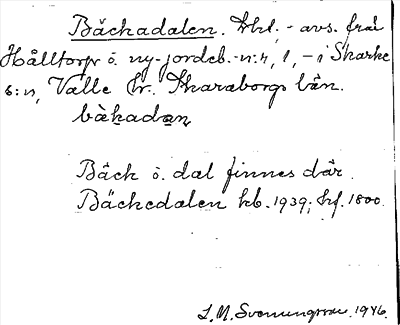 Bäckadalen. trkl. - avs. från
Hålltorp o. ny-jordeb.-n:r, 1, - i Skarke
s:n, Valle hr. Skaraborgs län.
bàkadan
Bäck o. dal finnes där.
Bäckedalen kb. 1939; hf. 1800.
L. M. Svenungsson 1946.